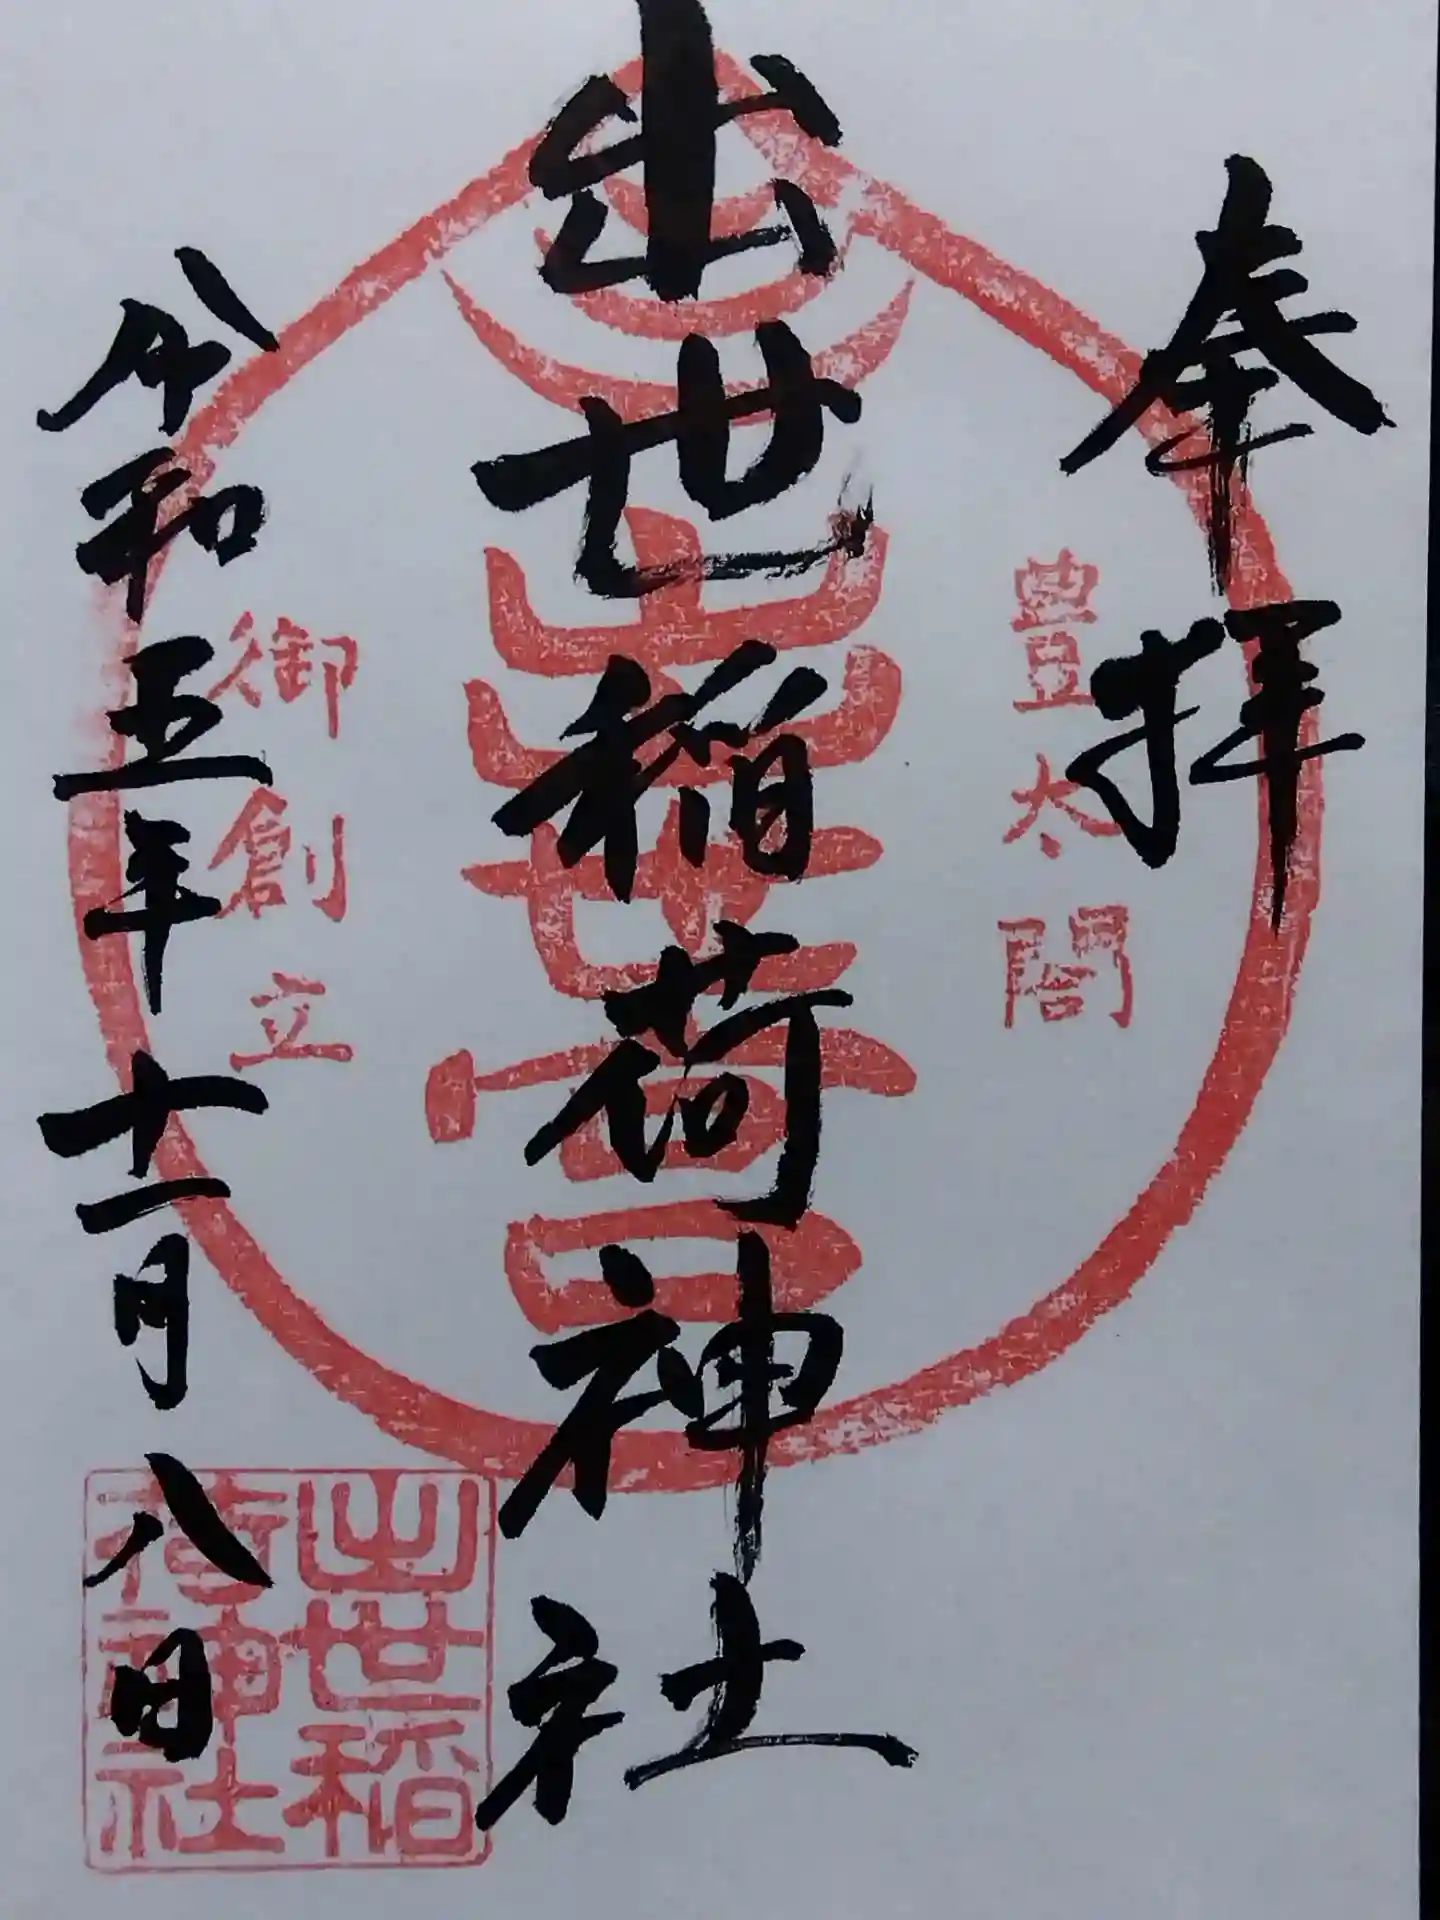 奉拝
豊太閤
出世稲荷神社
出世
御創立
令和五年十一月八日
出世稲
荷神社